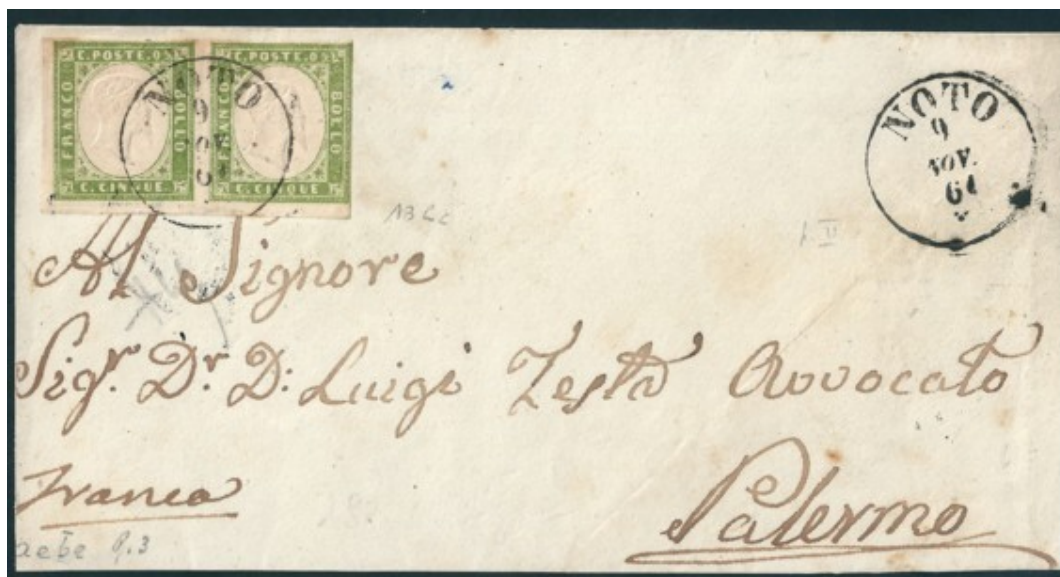 C. POSTE. 05
FRANCO
BOLLO
C. CINQUE
C. POSTE. 05
FRANCO
BOLLO
C. CINQUE
NOTO
9
NOTO
9
NOV.
61
13Cc
Al Signore
Sigr. Dr. D: Luigi Testa Avvocato
Franca
Palermo